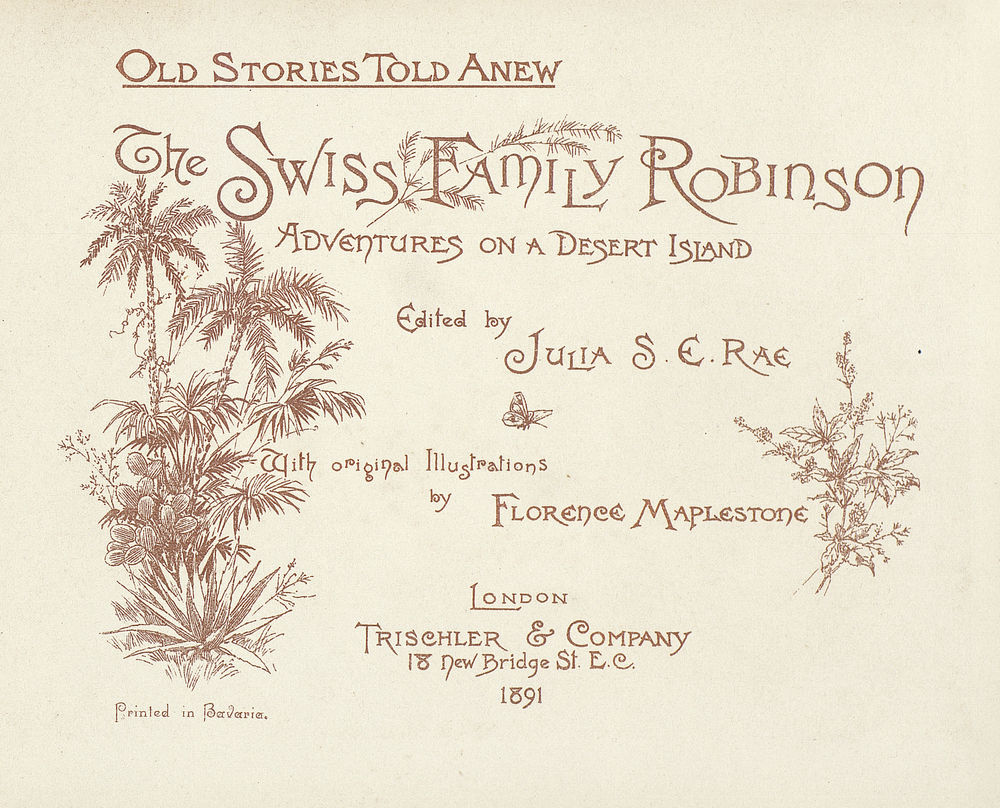 Old Stories Told Anew
The Swiss Family Robinson
Adventures on a Desert Island
Edited by
Julia S. E. Rae
With original Illustrations
by Florence Maplestone
London
Trischler & Company
18 New Bridge St. E.C.
1891
Printed in Bavaria.